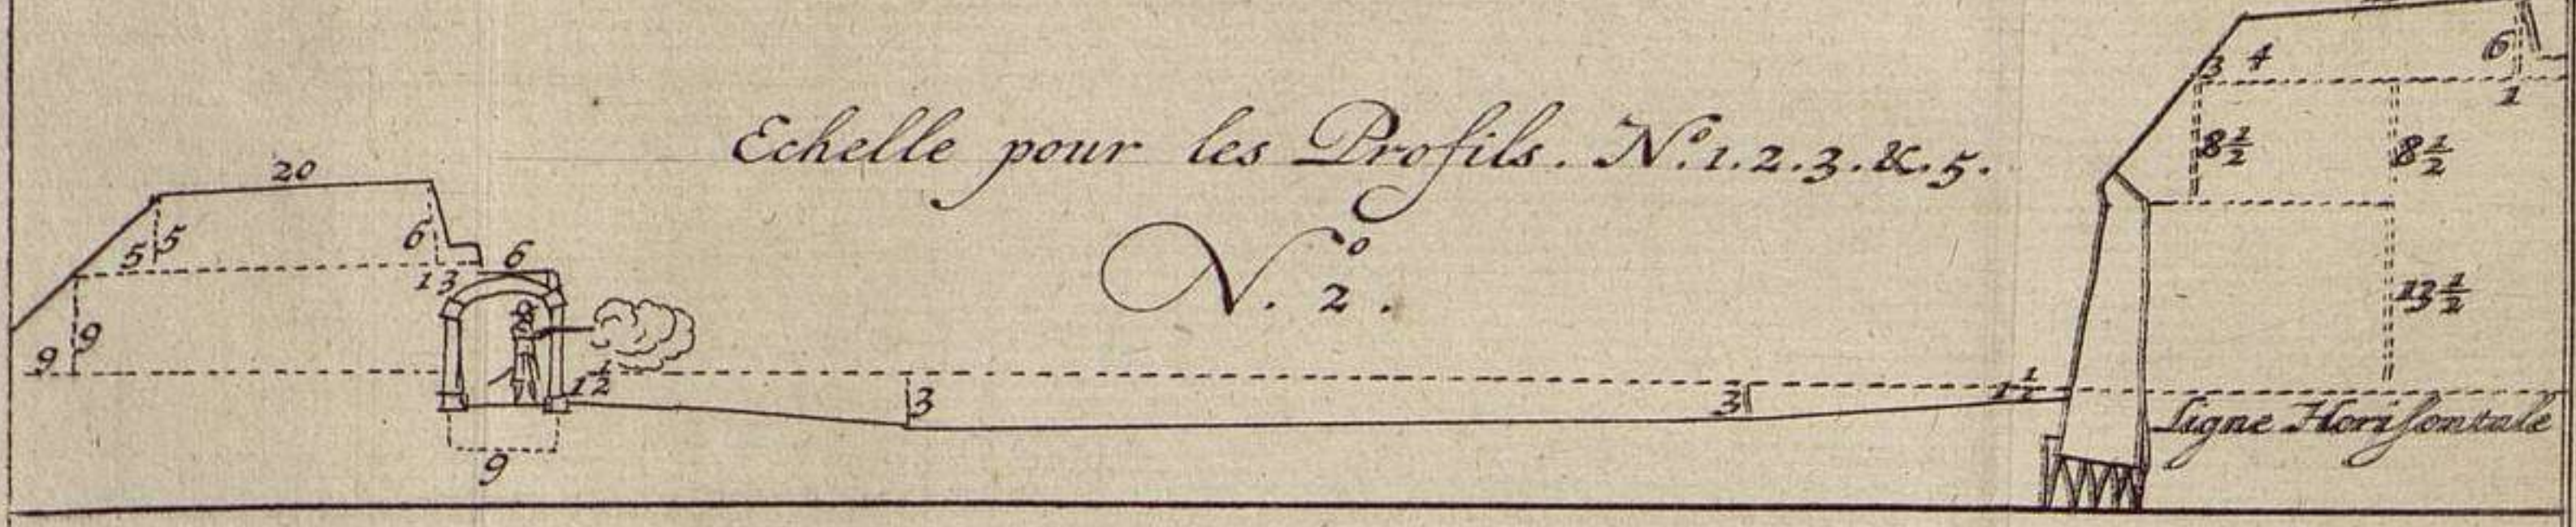 Echelle pour les Profils. No. 1. 2. 3. &. 5.
No. 2.
20
5 5
6
6
13
9 9
1½
9
3
3
1½
3 4
6
1
8½ 8½
13½
Ligne Horisontale